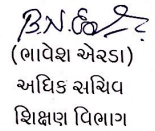 (ભાવેશ એરડા)
અધિક સચિવ
શિક્ષણ વિભાગ